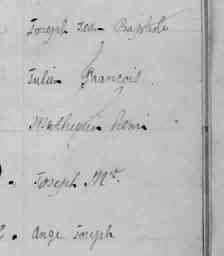 Joseph Jean Baptiste
Julien François
Mathurin henri
Joseph M.
Ange Joseph